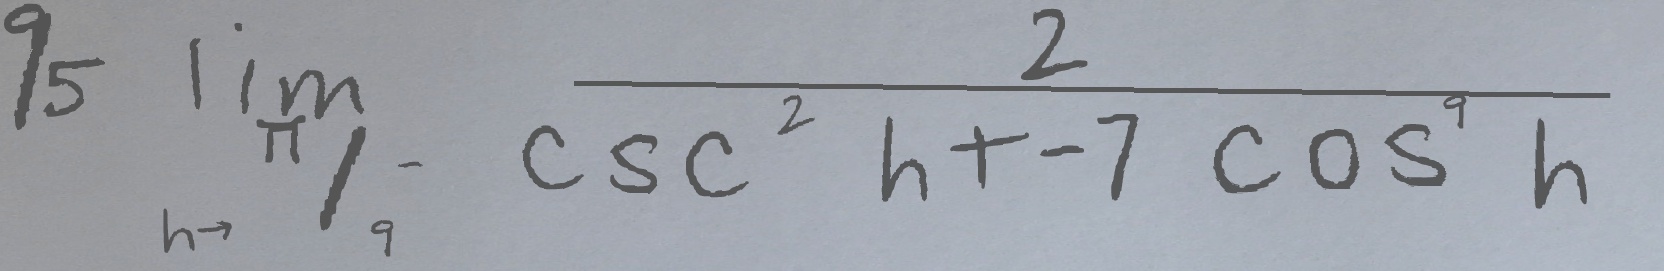 9/5 lim_{h→π/9^-} \frac{2}{csc^2 h+-7 cos^9 h}